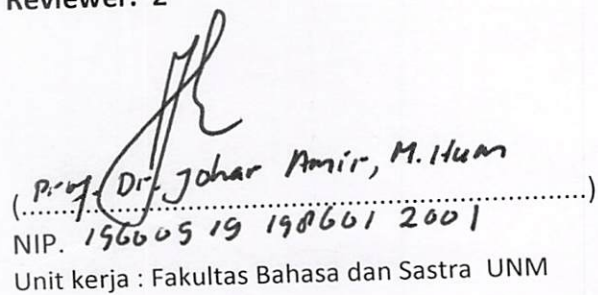 Reviewer: 2
(Prof. Dr. Johar Amir, M.Hum)
NIP. 19600519 198601 2001
Unit kerja : Fakultas Bahasa dan Sastra UNM